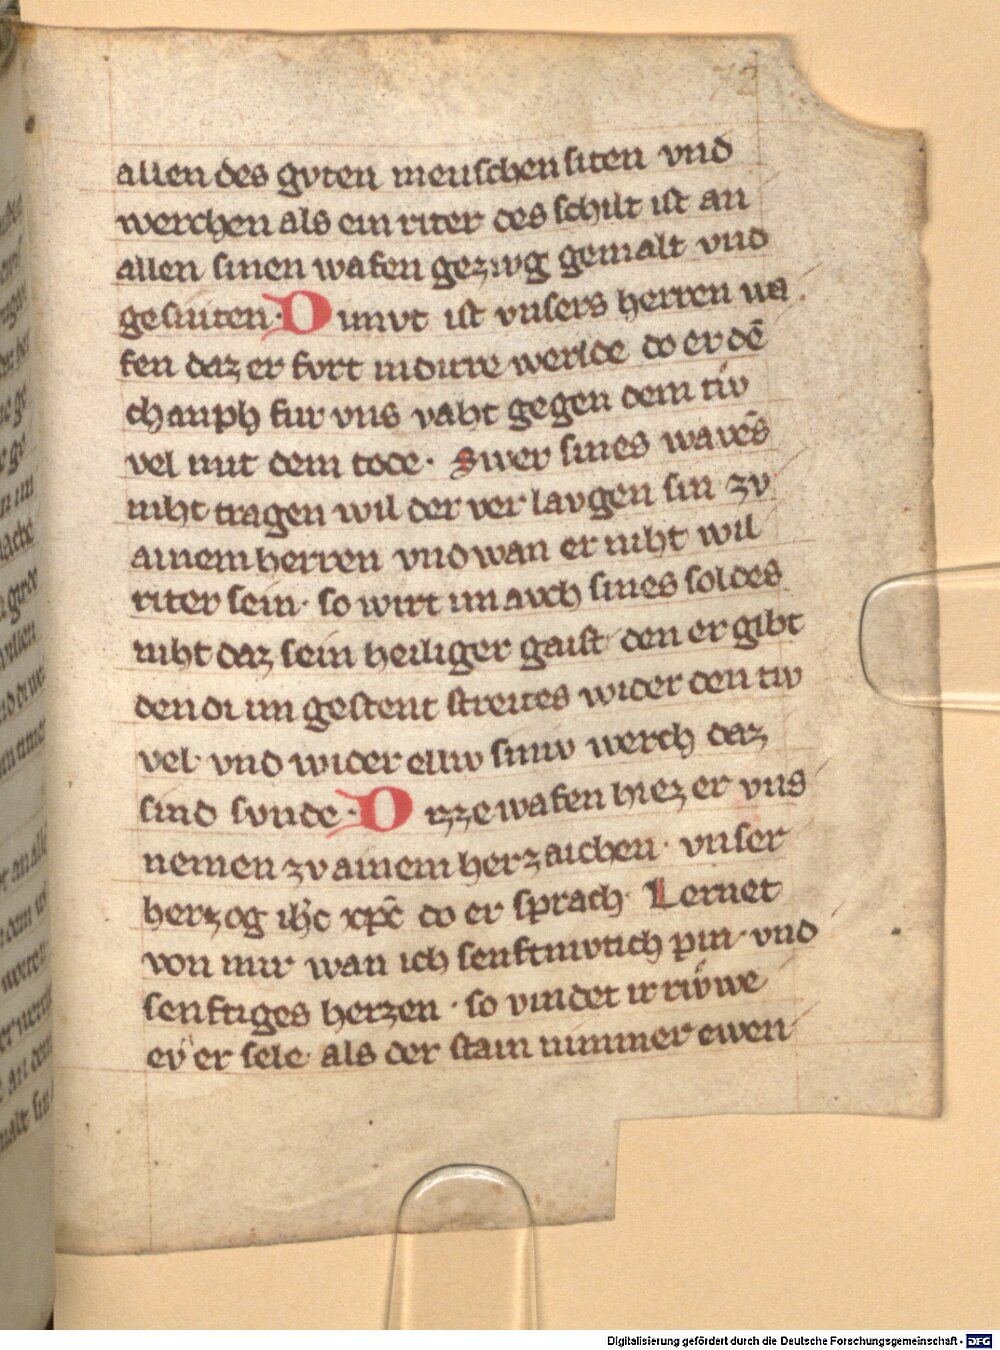 72
allen des gvten menschen siten vnd
werchen als ein riter des schilt ist an
allen sinen wafen gezivg gemalt vnd
gesniten· Dimvt ist vnsers herren wa
fen daz er fvrt in dirre werlde do er dē
champh fur vns vaht gegen dem tiv
vel mit dem tode· Swer sines wavēs
niht tragen wil der verlavgen sin zv
ainem herren vnd wan er niht wil
riter sein· so wirt im avch sines soldes
niht daz sein heiliger gaist den er gibt
den di im gestent streites wider den tiv
vel· vnd wider elliv siniv werch daz
sind svnde· Dizze wafen hiez er vns
nemen zv ainem herzaichen· vnser
herzog ihc xpc do er sprach· Lernet
von mir wan ich senftmvtich pin· vnd
senftiges herzen· so vindet ir rivwe
ev er sele· als der stain nimmer ewen
Digitalisierung gefördert durch die Deutsche Forschungsgemeinschaft - DFG